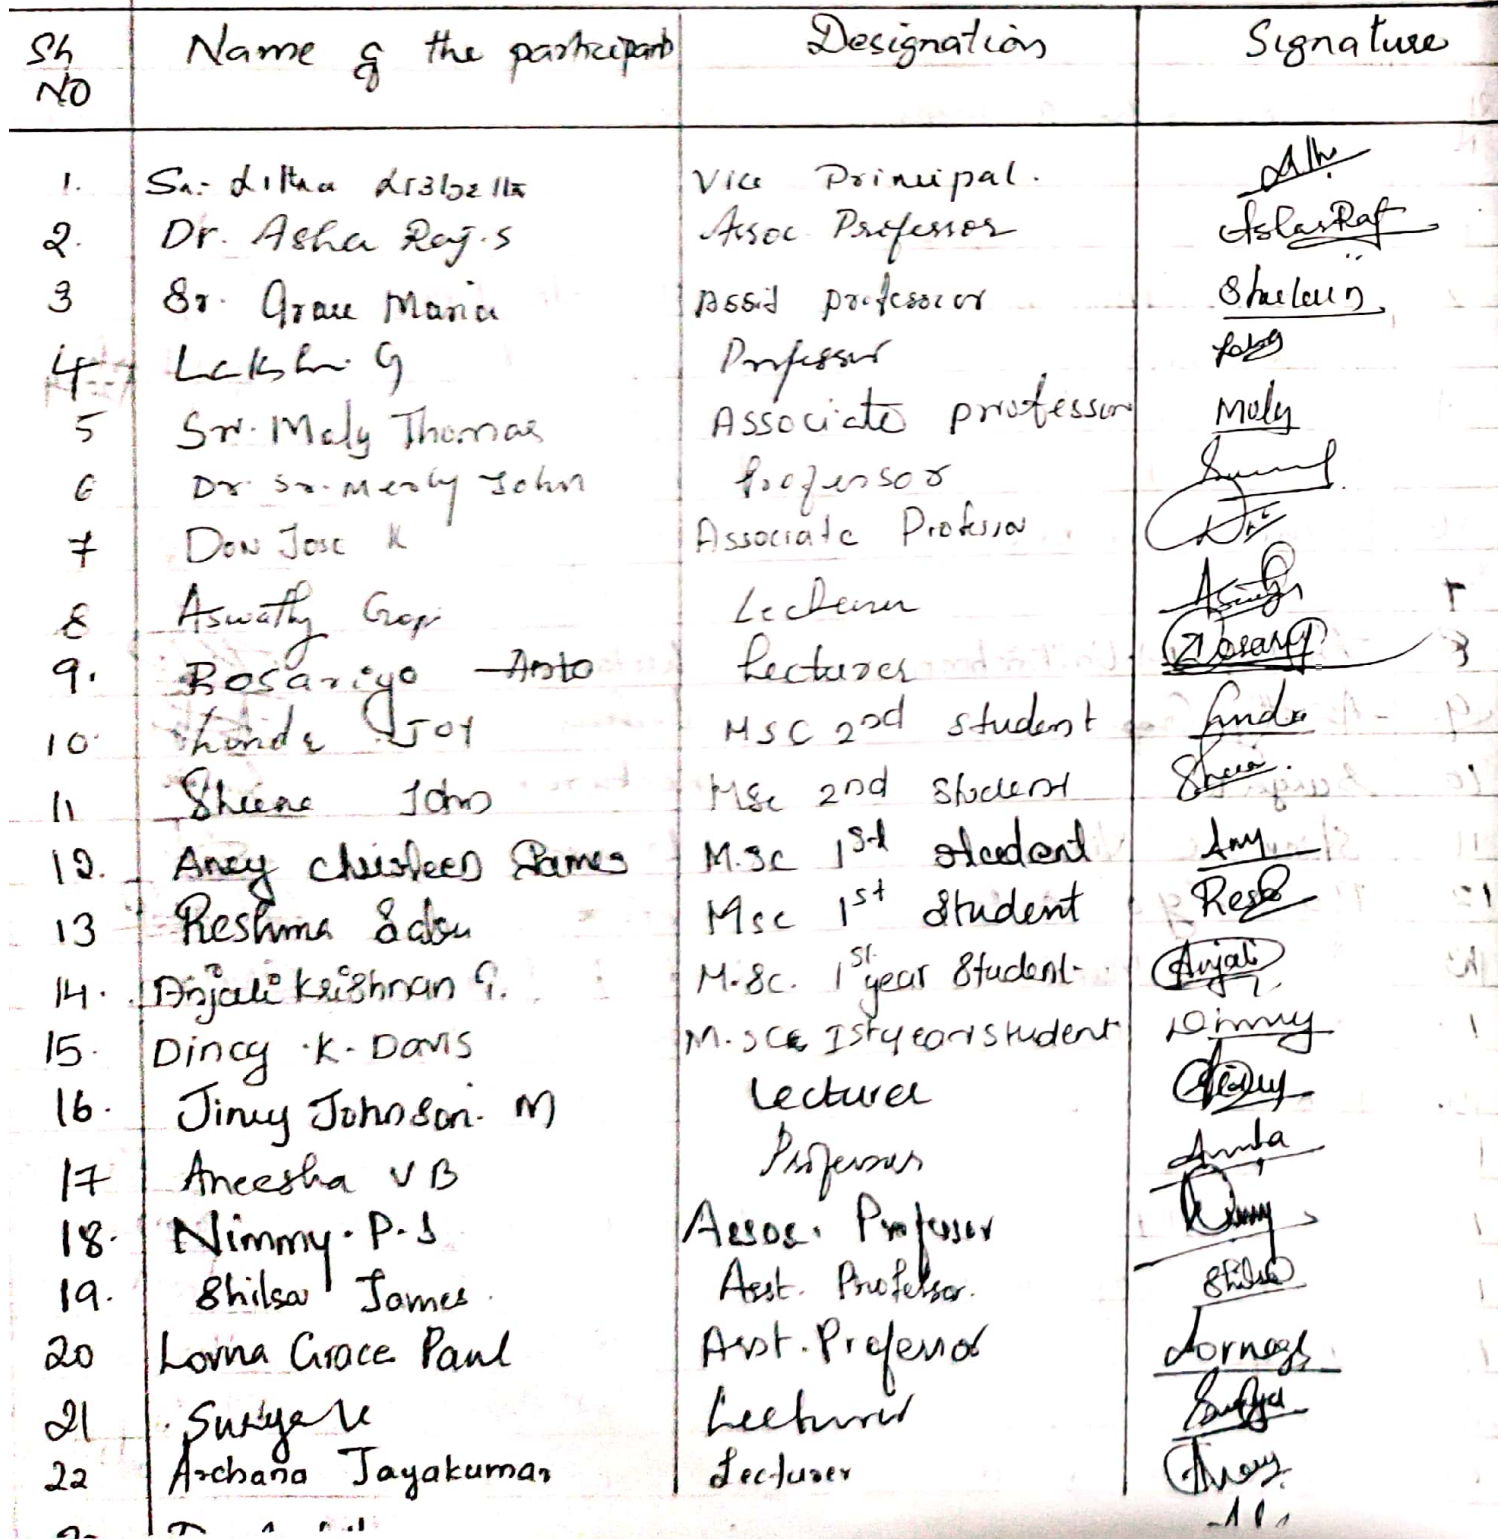 Sh NO Name of the participants Designation Signature
1. Sr. Litha Lisbella Vice Principal.
2. Dr. Asha Raj.S Assoc. Professor AshasRaj
3 Sr. Grace Maria Assit professor
4 Lakshmi G Professor
5 Sr. Moly Thomas Associate professor Moly
6 Dr. Sr. Merly John Professor
7 Don Jose K Associate Professor
8 Aswathy Gopi Lecturer
9. Rosariyo Anto Lecturer
10. Linda Joy MSC 2nd student Linda
11 Sheene John MSc 2nd Student
12. Ancy Christeen James M.Sc 1st student
13 Reshma Sabu Msc 1st Student
14. Anjali Krishnan G. M.Sc. 1st year Student Anjali
15. Dincy .K. Davis M.SC 1st year student
16. Jincy Johnson. M Lecturer
17 Aneesha V B Professor
18. Nimmy. P.J Assoc. Professor
19. Shilsa James. Asst. Professor. Shilsa
20 Lorna Grace Paul Asst. Professor
21 Surya K Lecturer Surya
22 Archana Jayakumar Lecturer